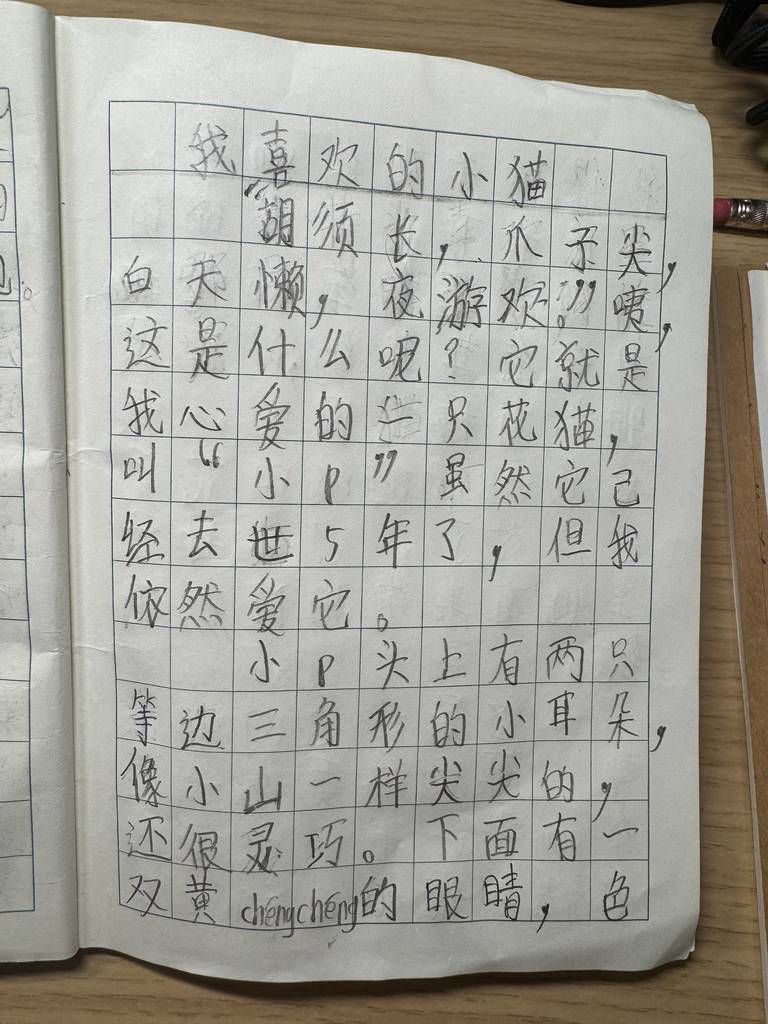 我喜欢的小猫
“胡须长，爪子尖，
白天懒，夜游欢。”咦，
这是什么呢？它就是
我心爱的一只花猫，
叫“小p”虽然它已
经去世5年了，但我
依然爱它。
小p头上有两只
等边三角形的小耳朵，
像小山一样尖尖的，
还很灵巧。下面有一
双黄chéngchéng的眼睛，色